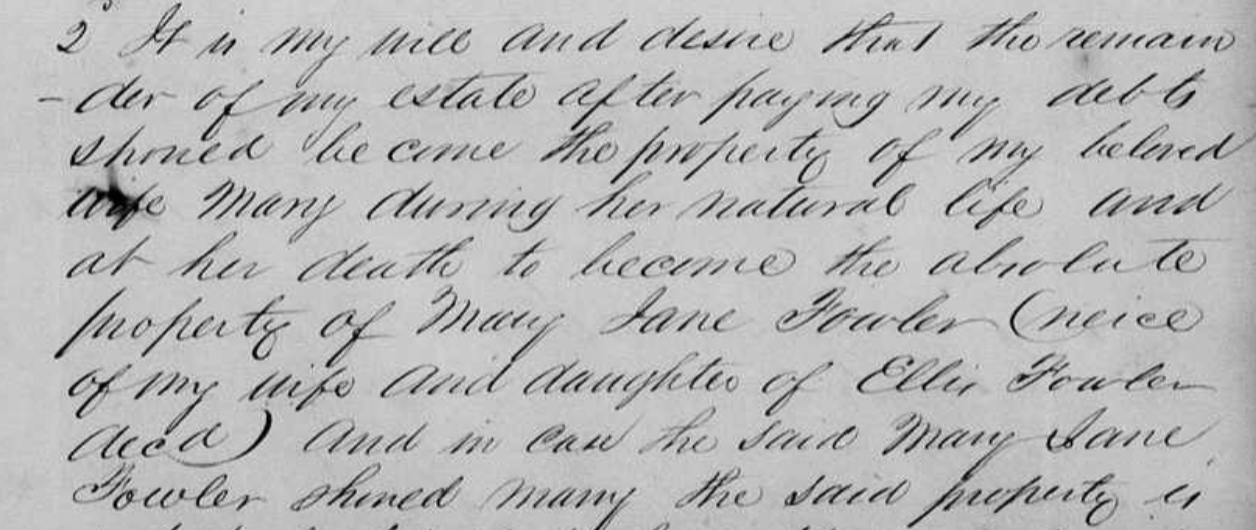 2° It is my will and desire that the remain
- der of my estate after paying my debts
should become the property of my beloved
wife Mary during her natural life and
at her death to become the absolute
property of Mary Jane Fowler (neice
of my wife and daughter of Ellis Fowler
decd) And in case the said Mary Jane
Fowler should marry the said property is